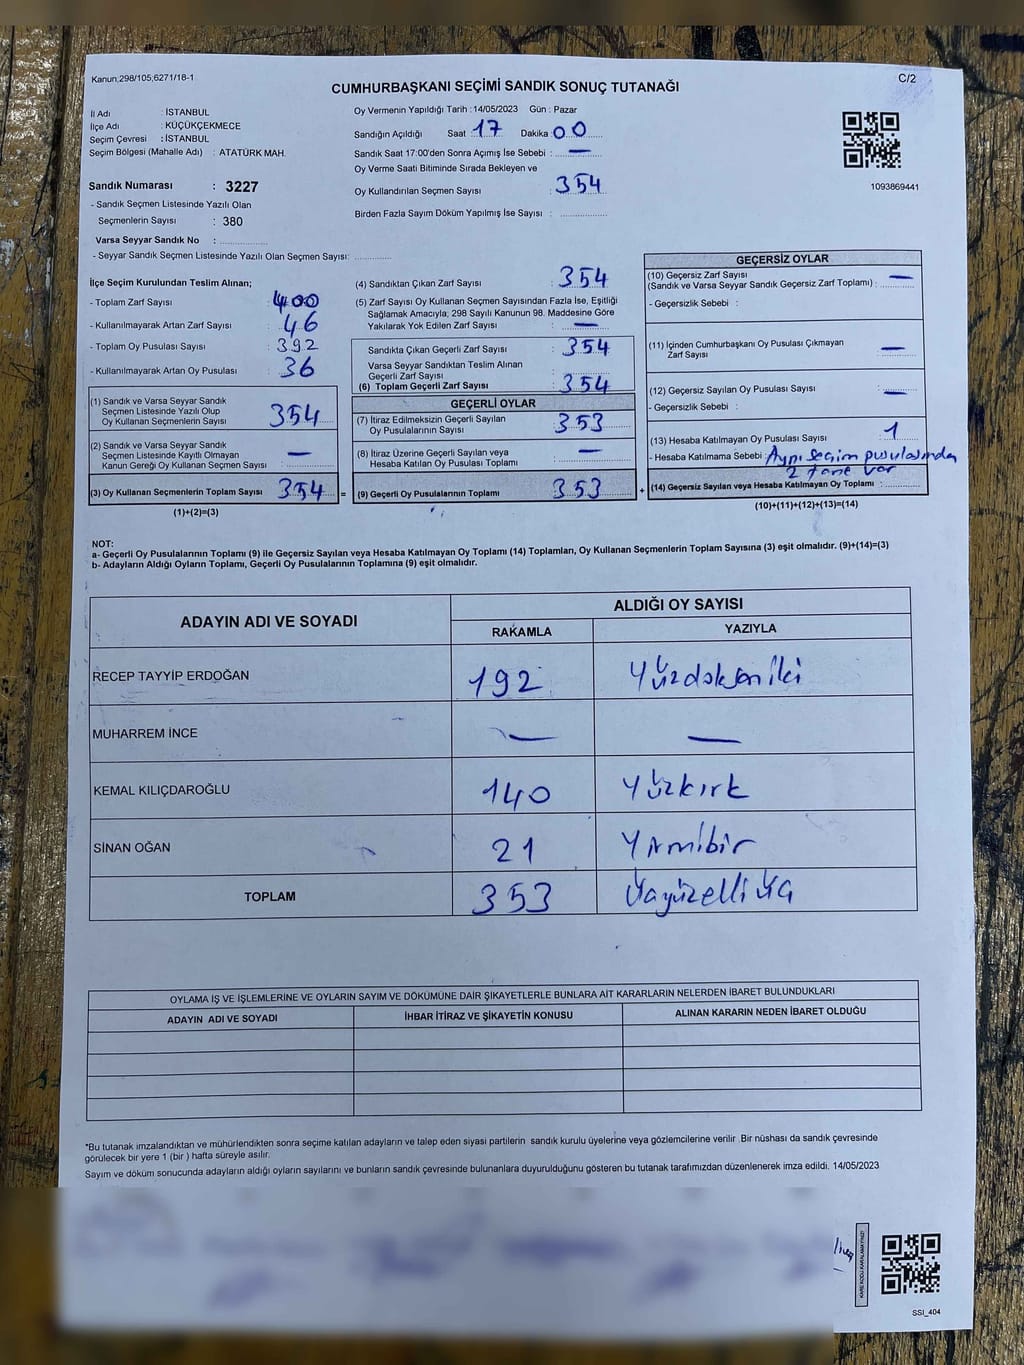 Kanun;298/105,6271/18-1
C/2
CUMHURBAŞKANI SEÇİMİ SANDIK SONUÇ TUTANAĞI
İl Adı : İSTANBUL
İlçe Adı : KÜÇÜKÇEKMECE
Seçim Çevresi : İSTANBUL
Seçim Bölgesi (Mahalle Adı) : ATATÜRK MAH.
Sandık Numarası : 3227
- Sandık Seçmen Listesinde Yazılı Olan
Seçmenlerin Sayısı : 380
Varsa Seyyar Sandık No :
- Seyyar Sandık Seçmen Listesinde Yazılı Olan Seçmen Sayısı:
Oy Vermenin Yapıldığı Tarih : 14/05/2023 Gün : Pazar
Sandığın Açıldığı Saat 17 Dakika 00
Sandık Saat 17:00'den Sonra Açımış İse Sebebi : —
Oy Verme Saati Bitiminde Sırada Bekleyen ve
Oy Kullandırılan Seçmen Sayısı : 354
Birden Fazla Sayım Döküm Yapılmış İse Sayısı :
1093869441
İlçe Seçim Kurulundan Teslim Alınan;
- Toplam Zarf Sayısı : 400
- Kullanılmayarak Artan Zarf Sayısı : 46
- Toplam Oy Pusulası Sayısı : 392
- Kullanılmayarak Artan Oy Pusulası : 36
(1) Sandık ve Varsa Seyyar Sandık
Seçmen Listesinde Yazılı Olup
Oy Kullanan Seçmenlerin Sayısı : 354
(2) Sandık ve Varsa Seyyar Sandık
Seçmen Listesinde Kayıtlı Olmayan
Kanun Gereği Oy Kullanan Seçmen Sayısı : —
(3) Oy Kullanan Seçmenlerin Toplam Sayısı : 354 =
(1)+(2)=(3)
(4) Sandıktan Çıkan Zarf Sayısı : 354
(5) Zarf Sayısı Oy Kullanan Seçmen Sayısından Fazla İse, Eşitliği
Sağlamak Amacıyla; 298 Sayılı Kanunun 98. Maddesine Göre
Yakılarak Yok Edilen Zarf Sayısı : —
Sandıkta Çıkan Geçerli Zarf Sayısı : 354
Varsa Seyyar Sandıktan Teslim Alınan
Geçerli Zarf Sayısı :
(6) Toplam Geçerli Zarf Sayısı : 354
GEÇERLİ OYLAR
(7) İtiraz Edilmeksizin Geçerli Sayılan
Oy Pusulalarının Sayısı : 353
(8) İtiraz Üzerine Geçerli Sayılan veya
Hesaba Katılan Oy Pusulası Toplamı : —
(9) Geçerli Oy Pusulalarının Toplamı : 353 +
GEÇERSİZ OYLAR
(10) Geçersiz Zarf Sayısı
(Sandık ve Varsa Seyyar Sandık Geçersiz Zarf Toplamı) : —
- Geçersizlik Sebebi :
(11) İçinden Cumhurbaşkanı Oy Pusulası Çıkmayan
Zarf Sayısı : —
(12) Geçersiz Sayılan Oy Pusulası Sayısı : —
- Geçersizlik Sebebi :
(13) Hesaba Katılmayan Oy Pusulası Sayısı : 1
- Hesaba Katılmama Sebebi : Aynı seçim pusulasından
2 tane var
(14) Geçersiz Sayılan veya Hesaba Katılmayan Oy Toplamı :
(10)+(11)+(12)+(13)=(14)
NOT:
a- Geçerli Oy Pusulalarının Toplamı (9) ile Geçersiz Sayılan veya Hesaba Katılmayan Oy Toplamı (14) Toplamları, Oy Kullanan Seçmenlerin Toplam Sayısına (3) eşit olmalıdır. (9)+(14)=(3)
b- Adayların Aldığı Oyların Toplamı, Geçerli Oy Pusulalarının Toplamına (9) eşit olmalıdır.
ADAYIN ADI VE SOYADI
ALDIĞI OY SAYISI
RAKAMLA YAZIYLA
RECEP TAYYİP ERDOĞAN 192 Yüzdoksaniki
MUHARREM İNCE — —
KEMAL KILIÇDAROĞLU 140 Yüzkırk
SİNAN OĞAN 21 Yirmibir
TOPLAM 353
OYLAMA İŞ VE İŞLEMLERİNE VE OYLARIN SAYIM VE DÖKÜMÜNE DAİR ŞİKAYETLERLE BUNLARA AİT KARARLARIN NELERDEN İBARET BULUNDUKLARI
ADAYIN ADI VE SOYADI İHBAR İTİRAZ VE ŞİKAYETİN KONUSU ALINAN KARARIN NEDEN İBARET OLDUĞU
*Bu tutanak imzalandıktan ve mühürlendikten sonra seçime katılan adayların ve talep eden siyasi partilerin sandık kurulu üyelerine veya gözlemcilerine verilir .Bir nüshası da sandık çevresinde
görülecek bir yere 1 (bir ) hafta süreyle asılır.
Sayım ve döküm sonucunda adayların aldığı oyların sayılarını ve bunların sandık çevresinde bulunanlara duyurulduğunu gösteren bu tutanak tarafımızdan düzenlenerek imza edildi. 14/05/2023
KARE KODU KARALAMAYINIZ!
SSI_404